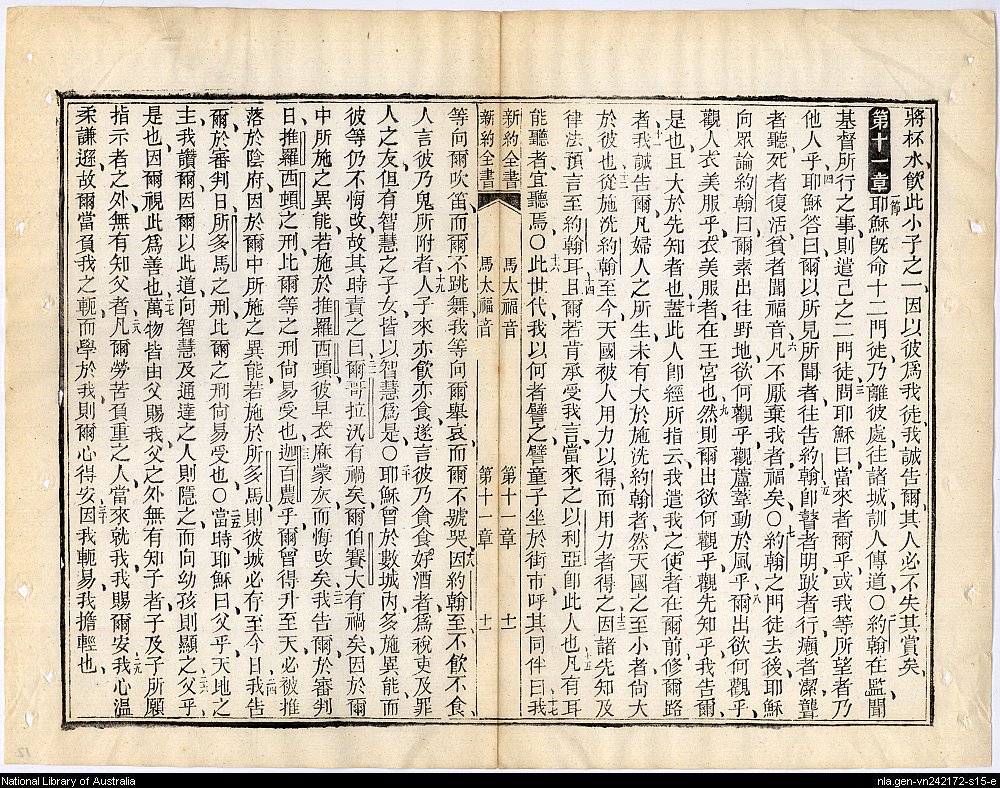 將杯水飲此小子之一因以彼爲我徒我誠告爾其人必不失其賞矣
第十一章 一節 耶穌旣命十二門徒乃離彼處往諸城訓人傳道〇二約翰在監聞
基督所行之事則遣己之二門徒三問耶穌曰當來者爾乎或我等所望者乃
他人乎四耶穌答曰爾以所見所聞者往告約翰五卽瞽者明跛者行癩者潔聾
者聽死者復活貧者聞福音六凡不厭棄我者福矣〇七約翰之門徒去後耶穌
向眾論約翰曰爾素出往野地欲何觀乎觀蘆葦動於風乎八爾出欲何觀乎
觀人衣美服乎衣美服者在王宮也九然則爾出欲何觀乎觀先知乎我告爾
是也且大於先知者也十蓋此人卽經所指云我遣我之使者在爾前修爾路
者十一我誠告爾凡婦人之所生未有大於施洗約翰者然天國之至小者尙大
於彼也十二從施洗約翰至今天國被人用力以得而用力者得之十三因諸先知及
律法預言至約翰耳十四且爾若肯承受我言當來之以利亞卽此人也十五凡有耳
能聽者宜聽焉〇十六此世代我以何者譬之譬童子坐於街市呼其同伴曰十七我
新約全書 馬太福音 第十一章 十一
新約全書 馬太福音 第十一章 十一
等向爾吹笛而爾不跳舞我等向爾舉哀而爾不號哭十八因約翰至不飲不食
人言彼乃鬼所附者十九人子來亦飲亦食遂言彼乃食食好酒者爲稅吏及罪
人之友但有智慧之子女皆以智慧爲是〇二十耶穌曾於數城內多施異能而
彼等仍不悔改故其時責之曰二一爾哥拉汛有禍矣爾伯賽大有禍矣因於爾
中所施之異能若施於推羅西頓彼早衣麻蒙灰而悔改矣二二我告爾於審判
日推羅西頓之刑比爾等之刑尙易受也二三迦百農乎爾曾得升至天必被推
落於陰府因於爾中所施之異能若施於所多馬則彼城必存至今日二四我告
爾於審判日所多馬之刑比爾之刑尙易受也〇二五當時耶穌曰父乎天地之
主我讚爾因爾以此道向智慧及通達之人則隱之而向幼孩則顯之二六父乎
是也因爾視此爲善也二七萬物皆由父賜我父之外無有知子者子及子所願
指示者之外無有知父者二八凡爾勞苦負重之人當來就我我賜爾安二九我心溫
柔謙遜故爾當負我之軛而學於我則爾心得安三十因我軛易我擔輕也
12
National Library of Australia
nla.gen-vn242172-s15-e